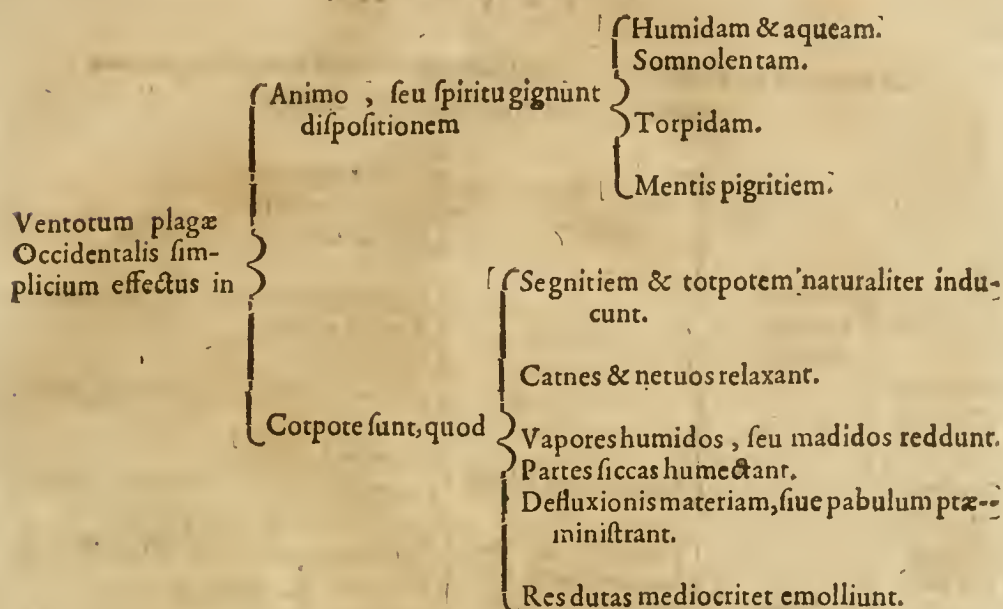 Ventorum plagæ
Occidentalis ſim-
plicium effectus in
Animo, ſeu ſpiritu gignunt
diſpoſitionem
Humidam & aqueam.
Somnolentam.
Torpidam.
Mentis pigritiem.
Corpore ſunt, quod
Segnitiem & torporem naturaliter indu-
cunt.
Carnes & neruos relaxant.
Vapores humidos, ſeu madidos reddunt.
Partes ſiccas humectant.
Defluxionis materiam, ſiue pabulum præ-
miniſtrant.
Res duras mediocriter emolliunt.